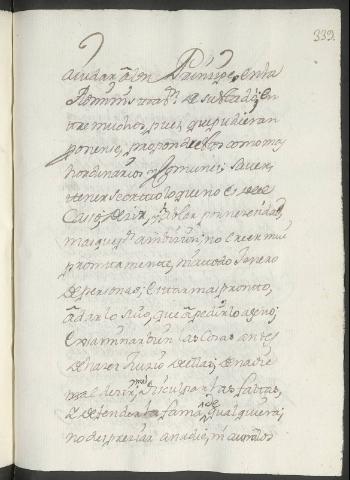 339.
ayudar a un Principe, en la
Admin.on de su estado; en
tre muchos, pues, que pudieran
ponerse, propondre los como mas
hordinarios, y comunes; saver,
tener secreto lo que no es de
caso, decir, hablar por necesidad,
mas que por ambicion; no creer mui
promtamente, ni a todo genero
de personas; estar mas prompto,
a dar lo suio, que a pedir lo ageno;
examinar bien las cosas antes
de hacer Juizio de ellas; de nadie
mal decir; disculpar las faltas,
y defender la fama de qualquiera;
no despreciar a nadie, ni aun a los